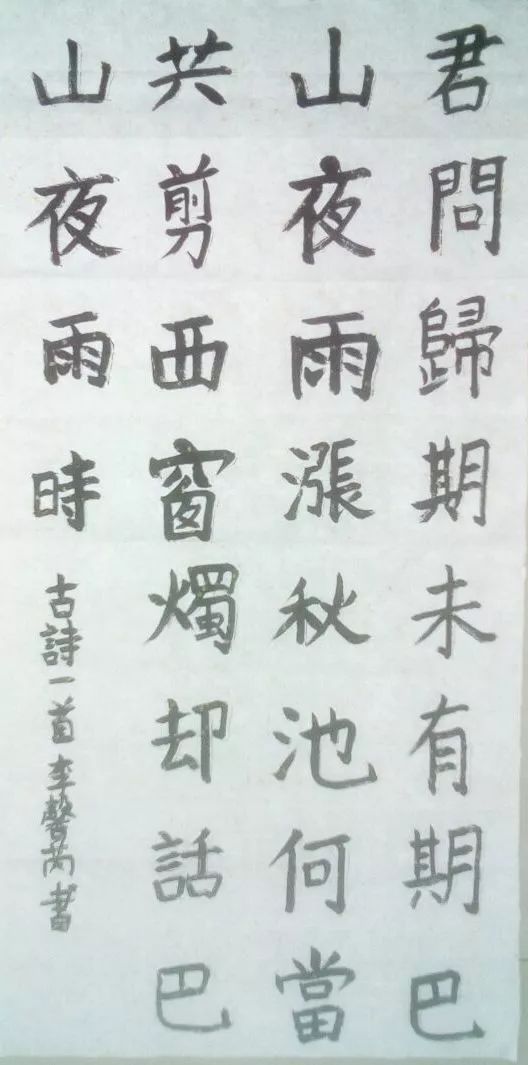 君問歸期未有期巴
山夜雨漲秋池何當
共剪西窗燭却話巴
山夜雨時
古詩一首李馨芮書